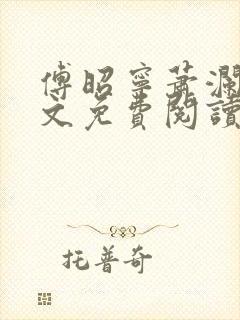 傅昭寧蕭瀾
文免費閱讀
托普奇